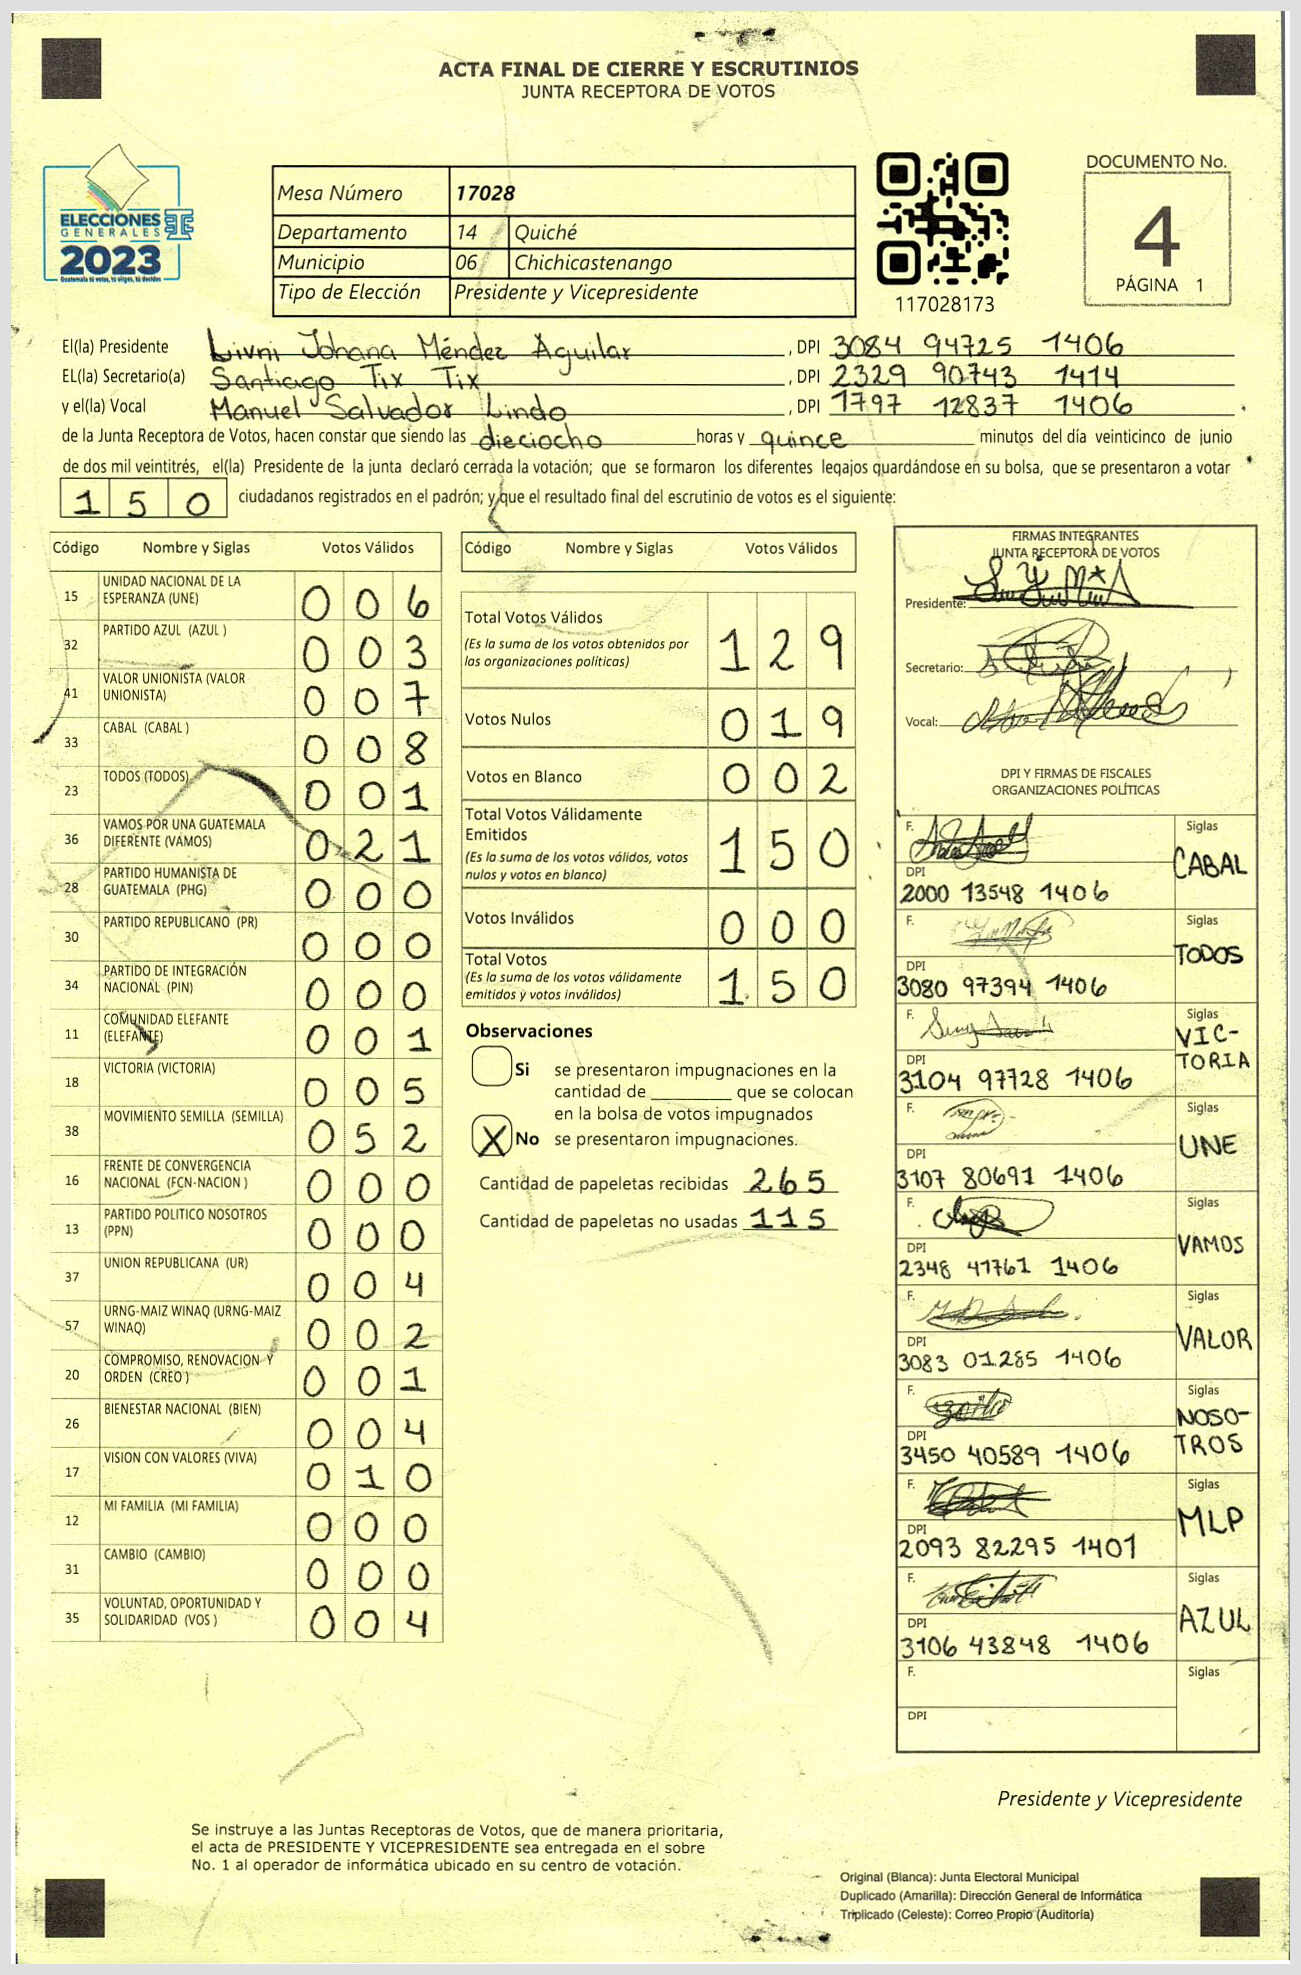 ACTA FINAL DE CIERRE Y ESCRUTINIOS
JUNTA RECEPTORA DE VOTOS
ELECCIONES
GENERALES
2023
Guatemala tú votas, tú eliges, tú decides
Mesa Número 17028
Departamento 14 Quiché
Municipio 06 Chichicastenango
Tipo de Elección Presidente y Vicepresidente
117028173
DOCUMENTO No.
4
PÁGINA 1
El(la) Presidente Livni Johana Méndez Aguilar , DPI 3084 94725 1406
EL(la) Secretario(a) Santiago Tix Tix , DPI 2329 90743 1414
y el(la) Vocal Manuel Salvador Lindo , DPI 1797 12837 1406
de la Junta Receptora de Votos, hacen constar que siendo las dieciocho horas y quince minutos del día veinticinco de junio
de dos mil veintitrés, el(la) Presidente de la junta declaró cerrada la votación; que se formaron los diferentes legajos quardándose en su bolsa, que se presentaron a votar
150 ciudadanos registrados en el padrón; y que el resultado final del escrutinio de votos es el siguiente:
Código Nombre y Siglas Votos Válidos
15 UNIDAD NACIONAL DE LA
ESPERANZA (UNE) 006
32 PARTIDO AZUL (AZUL ) 003
41 VALOR UNIONISTA (VALOR
UNIONISTA) 007
33 CABAL (CABAL ) 008
23 TODOS (TODOS) 001
36 VAMOS POR UNA GUATEMALA
DIFERENTE (VAMOS) 021
28 PARTIDO HUMANISTA DE
GUATEMALA (PHG) 000
30 PARTIDO REPUBLICANO (PR) 000
34 PARTIDO DE INTEGRACIÓN
NACIONAL (PIN) 000
11 COMUNIDAD ELEFANTE
(ELEFANTE) 001
18 VICTORIA (VICTORIA) 005
38 MOVIMIENTO SEMILLA (SEMILLA) 052
16 FRENTE DE CONVERGENCIA
NACIONAL (FCN-NACION ) 000
13 PARTIDO POLITICO NOSOTROS
(PPN) 000
37 UNION REPUBLICANA (UR) 004
57 URNG-MAIZ WINAQ (URNG-MAIZ
WINAQ) 002
20 COMPROMISO, RENOVACION Y
ORDEN (CREO ) 001
26 BIENESTAR NACIONAL (BIEN) 004
17 VISION CON VALORES (VIVA) 010
12 MI FAMILIA (MI FAMILIA) 000
31 CAMBIO (CAMBIO) 000
35 VOLUNTAD, OPORTUNIDAD Y
SOLIDARIDAD (VOS ) 004
Código Nombre y Siglas Votos Válidos
Total Votos Válidos 129
(Es la suma de los votos obtenidos por
las organizaciones políticas)
Votos Nulos 019
Votos en Blanco 002
Total Votos Válidamente
Emitidos 150
(Es la suma de los votos válidos, votos
nulos y votos en blanco)
Votos Inválidos 000
Total Votos 150
(Es la suma de los votos válidamente
emitidos y votos inválidos)
Observaciones
Si se presentaron impugnaciones en la
cantidad de ________ que se colocan
en la bolsa de votos impugnados
X No se presentaron impugnaciones.
Cantidad de papeletas recibidas 265
Cantidad de papeletas no usadas 115
FIRMAS INTEGRANTES
JUNTA RECEPTORA DE VOTOS
Presidente:
Secretario:
Vocal:
DPI Y FIRMAS DE FISCALES
ORGANIZACIONES POLÍTICAS
F. Siglas
CABAL
DPI
2000 13548 1406
F. Siglas
TODOS
DPI
3080 97394 1406
F. Siglas
VIC-
TORIA
DPI
3104 97728 1406
F. Siglas
UNE
DPI
3107 80691 1406
F. Siglas
VAMOS
DPI
2348 41761 1406
F. Siglas
VALOR
DPI
3083 01285 1406
F. Siglas
NOSO-
TROS
DPI
3450 40589 1406
F. Siglas
MLP
DPI
2093 82295 1401
F. Siglas
AZUL
DPI
3106 43848 1406
F. Siglas
DPI
Presidente y Vicepresidente
Se instruye a las Juntas Receptoras de Votos, que de manera prioritaria,
el acta de PRESIDENTE Y VICEPRESIDENTE sea entregada en el sobre
No. 1 al operador de informática ubicado en su centro de votación.
Original (Blanca): Junta Electoral Municipal
Duplicado (Amarilla): Dirección General de Informática
Triplicado (Celeste): Correo Propio (Auditoría)